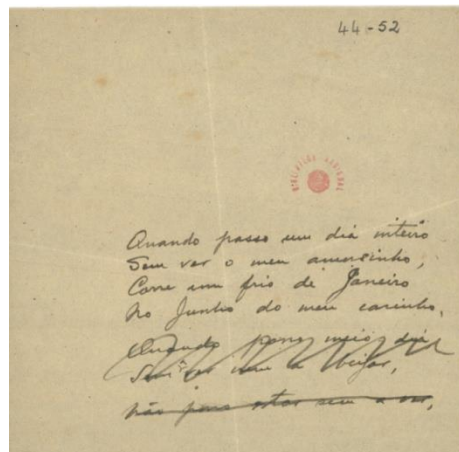 44-52
BIBLIOTECA NACIONAL
Quando passo um dia inteiro
Sem ver o meu amorsinho,
Corre um frio de Janeiro
No Junho do meu carinho.
Quando passo meio dia
Sem ver nem a beijar,
Não posso estar sem a ver,